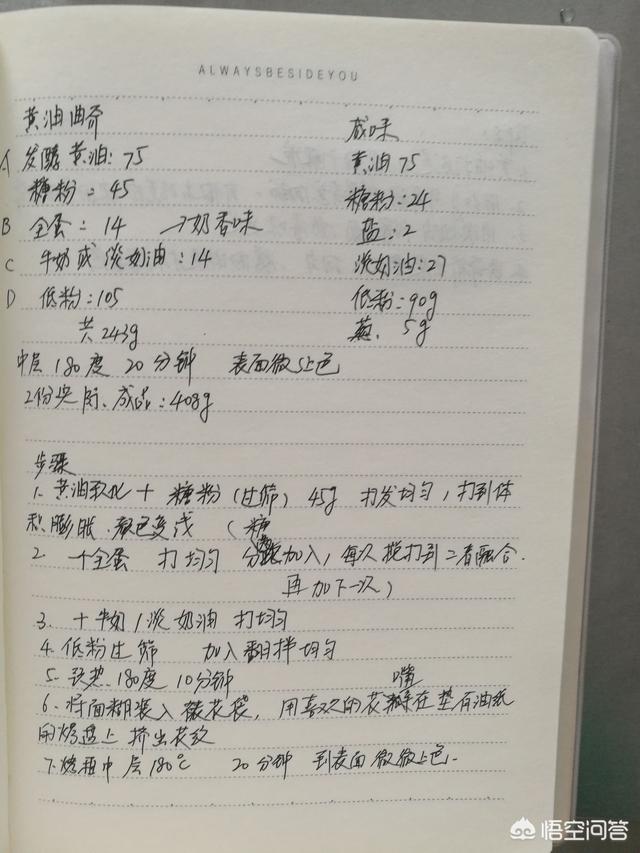 ALWAYSBESIDEYOU
黄油曲奇 咸味
A 发酵黄油:75 黄油75
糖粉:45 糖粉:24
B 全蛋:14 →奶香味 盐:2
C 牛奶或淡奶油:14 淡奶油:27
D 低粉:105 低粉:90g
共243g 葱. 5g
中层180度 20分钟 表面微上色
2份 成品:408g
步骤
1. 黄油软化+糖粉(过筛)45g 打发均匀,打到体
积膨胀.颜色变浅 (糖
2. 十全蛋 打均匀 分 加入,每次搅打到二者融合.
再加下一次)
3. 十牛奶/淡奶油 打均匀
4. 低粉过筛 加入翻拌均匀
5. 预热180度10分钟 嘴
6. 将面糊装入裱花袋,用喜欢的花 在垫有油纸
的烤盘上 挤出花纹
7. 烤箱中层180℃ 20分钟 到表面微微上色.
悟空问答